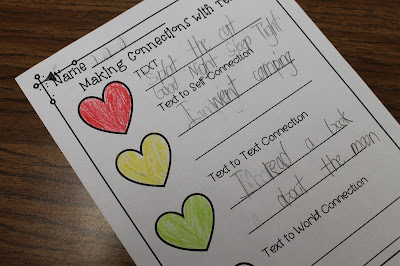 Name
Making Connections with Te
TEXT
Splat the cat
Good Night Sleep tight
Text to Self Connection
I went camping
Text to Text Connection
read a book
about the moon
Text to World Connection